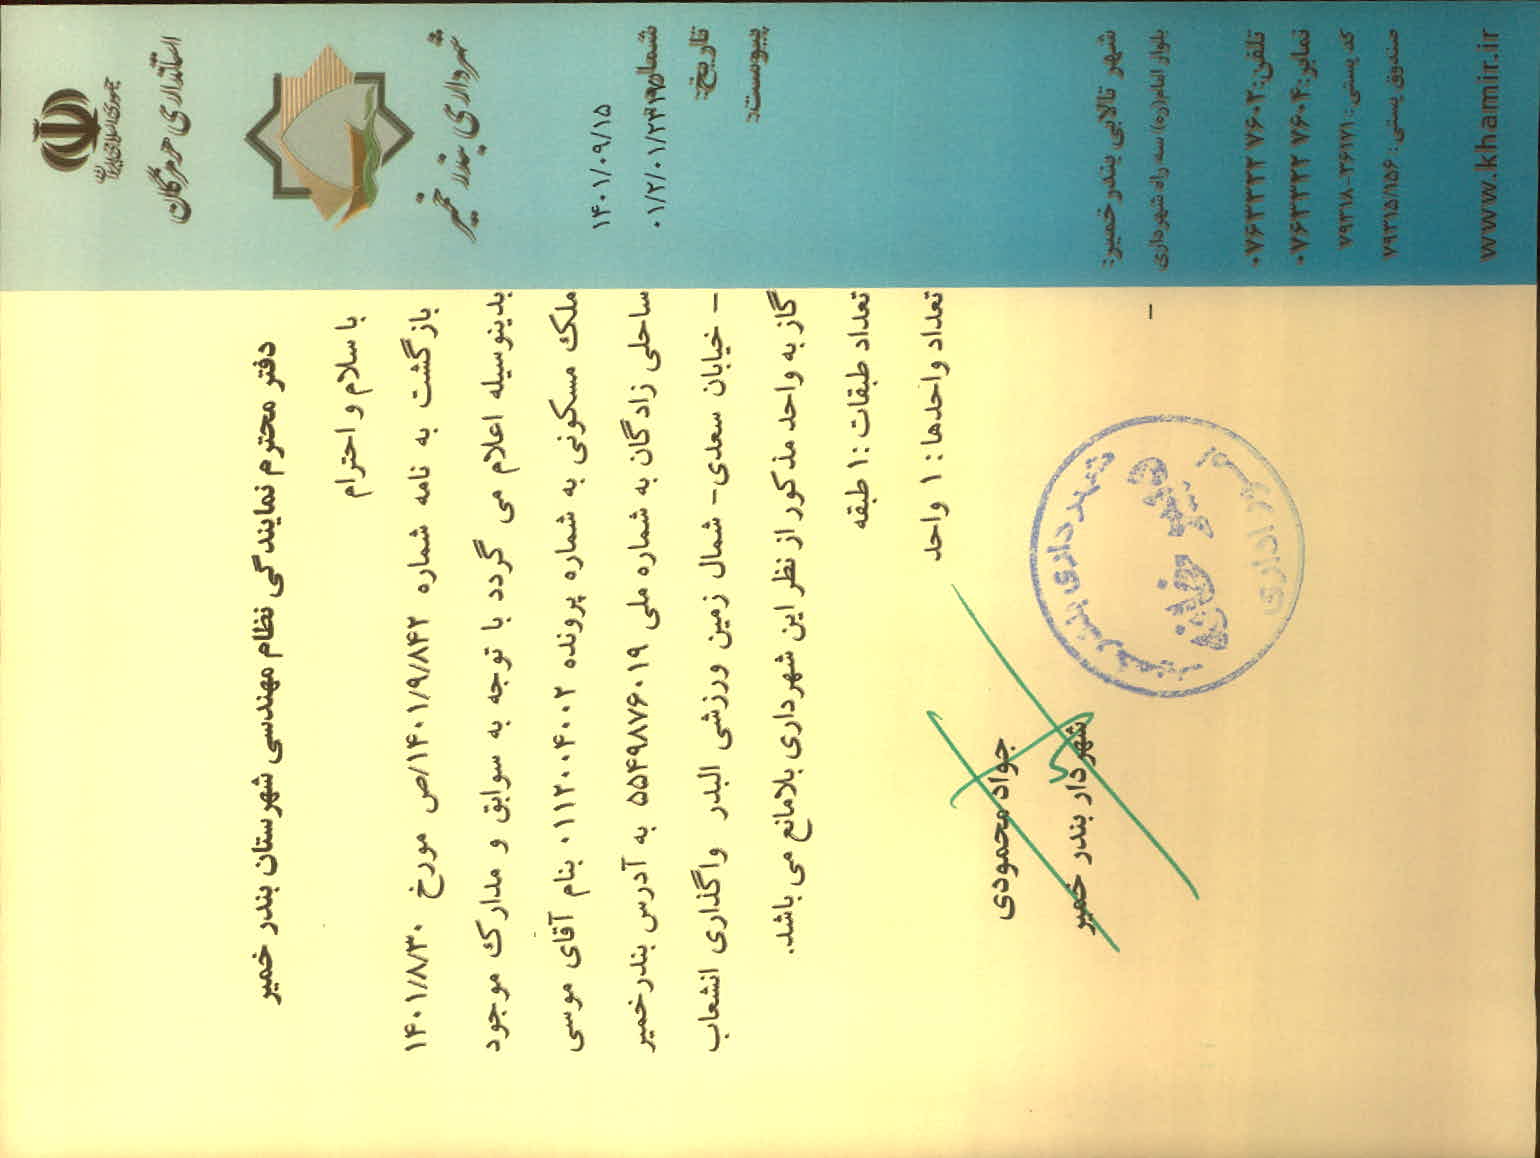 جمهوری اسلامی ایران
استانداری هرمزگان
شهرداری بندر خمیر
۱۴۰۱/۰۹/۱۵
شماره:
تاریخ:
پیوست:
دفتر محترم نمایندگی نظام مهندسی شهرستان بندر خمیر
با سلام و احترام
بازگشت به نامه شماره ۱۴۰۱/۹/۸۴۲/ص مورخ ۱۴۰۱/۸/۳۰
بدینوسیله اعلام می گردد با توجه به سوابق و مدارک موجود
ملک مسکونی به شماره پرونده ۰۱۱۲۰۰۴۰۰۲ بنام آقای موسی
ساحلی زادگان به شماره ملی ۵۵۴۹۸۷۶۰۱۹ به آدرس بندرخمیر
- خیابان سعدی- شمال زمین ورزشی البدر واگذاری انشعاب
گاز به واحد مذکور از نظر این شهرداری بلامانع می باشد.
تعداد طبقات :۱ طبقه
تعداد واحدها : ۱ واحد
جواد محمودی
شهردار بندر خمیر
شهرداری بندر خمیر
دبیرخانه
امور اداری
-
شهر تالابی بندر خمیر:
بلوار امام(ره) سه راه شهرداری
تلفن: ۰۷۶۳۳۳۲ ۷۶۰۲
نمابر: ۰۷۶۳۳۳۲ ۷۶۰۴
کد پستی: ۷۹۳۱۸-۳۶۱۷۱
صندوق پستی: ۷۹۳۱۵/۱۵۶
www.khamir.ir